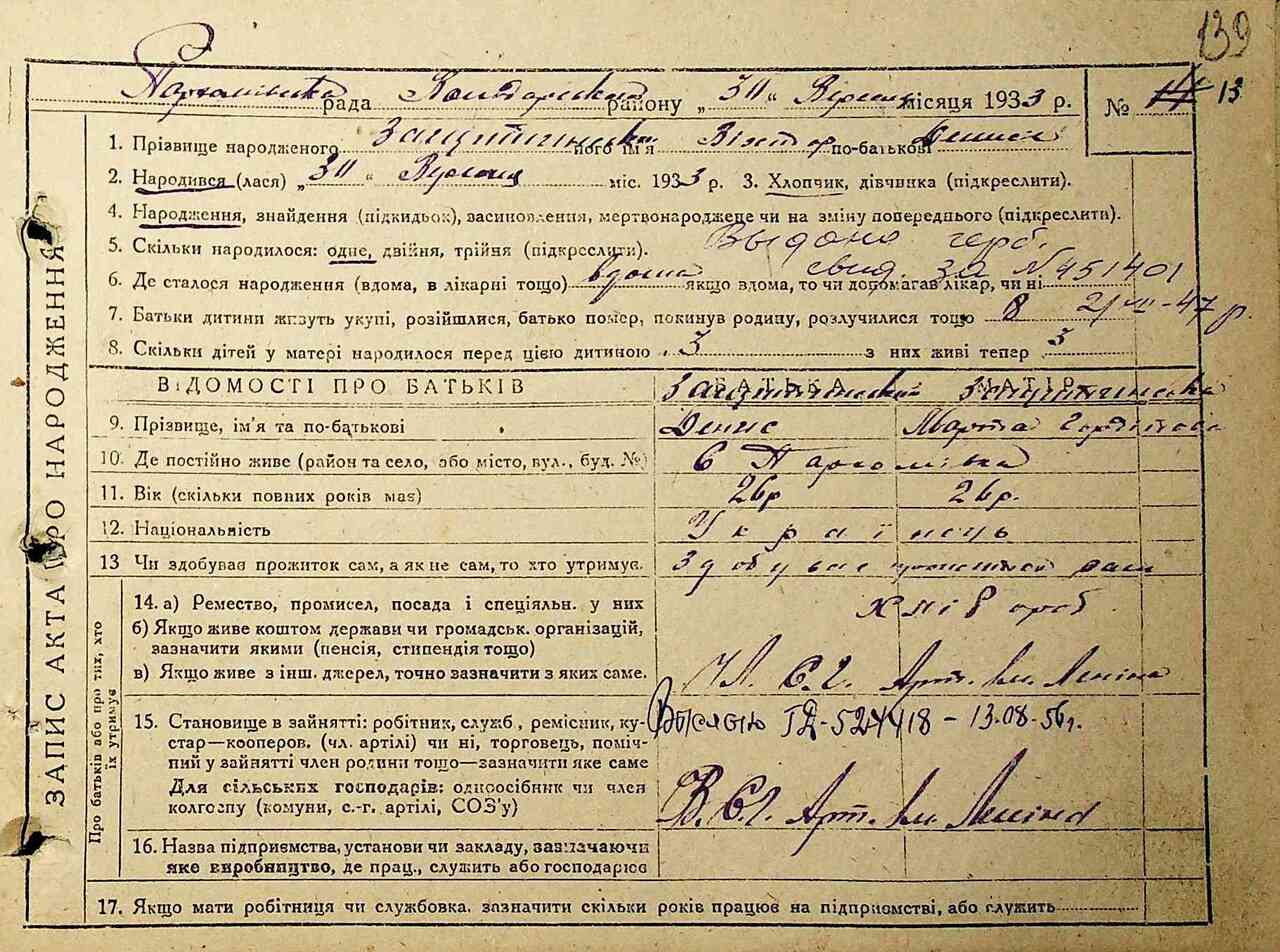 139
рада району „30“ Вересня місяця 1933 р. № 13
1. Прізвище народженого його ім'я Віктор по-батькові Денисов
2. Народився (лася) „30“ Вересня міс. 1933 р. 3. Хлопчик, дівчинка (підкреслити).
4. Народження, знайдення (підкидьок), засиновлення, мертвонароджене чи на зміну попереднього (підкреслити).
5. Скільки народилося: одне, двійня, трійня (підкреслити). Выдано герб.
свид. за N 451401
6. Де сталося народження (вдома, в лікарні тощо) вдома якщо вдома, то чи допомагав лікар, чи ні
7. Батьки дитини живуть укупі, розійшлися, батько помер, покинув родину, розлучилися тощо 8 21/VII-47 р.
8. Скільки дітей у матері народилося перед цією дитиною 3 з них живі тепер 3
ВІДОМОСТІ ПРО БАТЬКІВ БАТЬКА МАТІР
9. Прізвище, ім'я та по-батькові Денис Марта
10. Де постійно живе (район та село, або місто, вул., буд. №) с Пархомівка
11. Вік (скільки повних років має) 26р 26р.
12. Національність Українець
13 Чи здобував прожиток сам, а як не сам, то хто утримує. Здобуває сам
14. а) Ремество, промисел, посада і спеціяльн. у них хлібороб
б) Якщо живе коштом держави чи громадськ. організацій, зазначити якими (пенсія, стипендія тощо)
в) Якщо живе з інш. джерел, точно зазначити з яких саме. Чл. С.Г. Арт. Ім. Леніна
15. Становище в зайнятті: робітник, служб., ремісник, ку-
стар—кооперов. (чл. артілі) чи ні, торговець, поміч-
ний у зайнятті член родини тощо—зазначити яке саме
Для сільських господарів: одноосібник чи член
колгоспу (комуни, с.-г. артілі, СОЗ'у)
ГД-524418 - 13.08-56г.
В. С.Г. Арт. Ім. Леніна
16. Назва підприємства, установи чи закладу, зазначаючи
яке виробництво, де прац., служить або господарює
17. Якщо мати робітниця чи службовка. зазначити скільки років працює на підприємстві, або служить
ЗАПИС АКТА ПРО НАРОДЖЕННЯ
Про батьків або про тих, хто
їх утримує